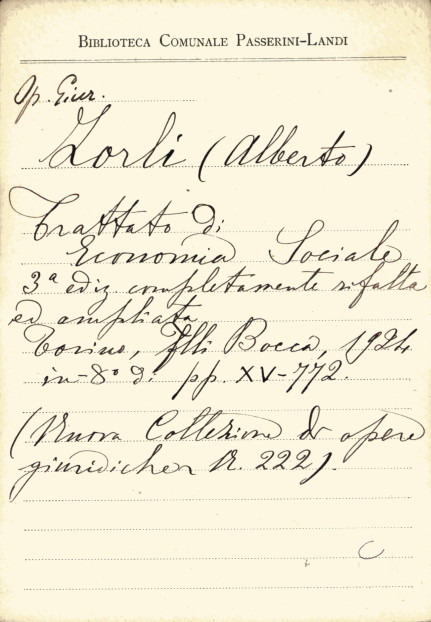 BIBLIOTECA COMUNALE PASSERINI-LANDI
Op. Giur.
Zorli (Alberto)
Trattato di
Economia Sociale
3ª ediz. completamente rifatta
ed ampliata
Torino, Flli Bocca, 1924
in-8° di pp. XV-772.
(Nuova Collezione di opere
giuridiche N. 222).
C